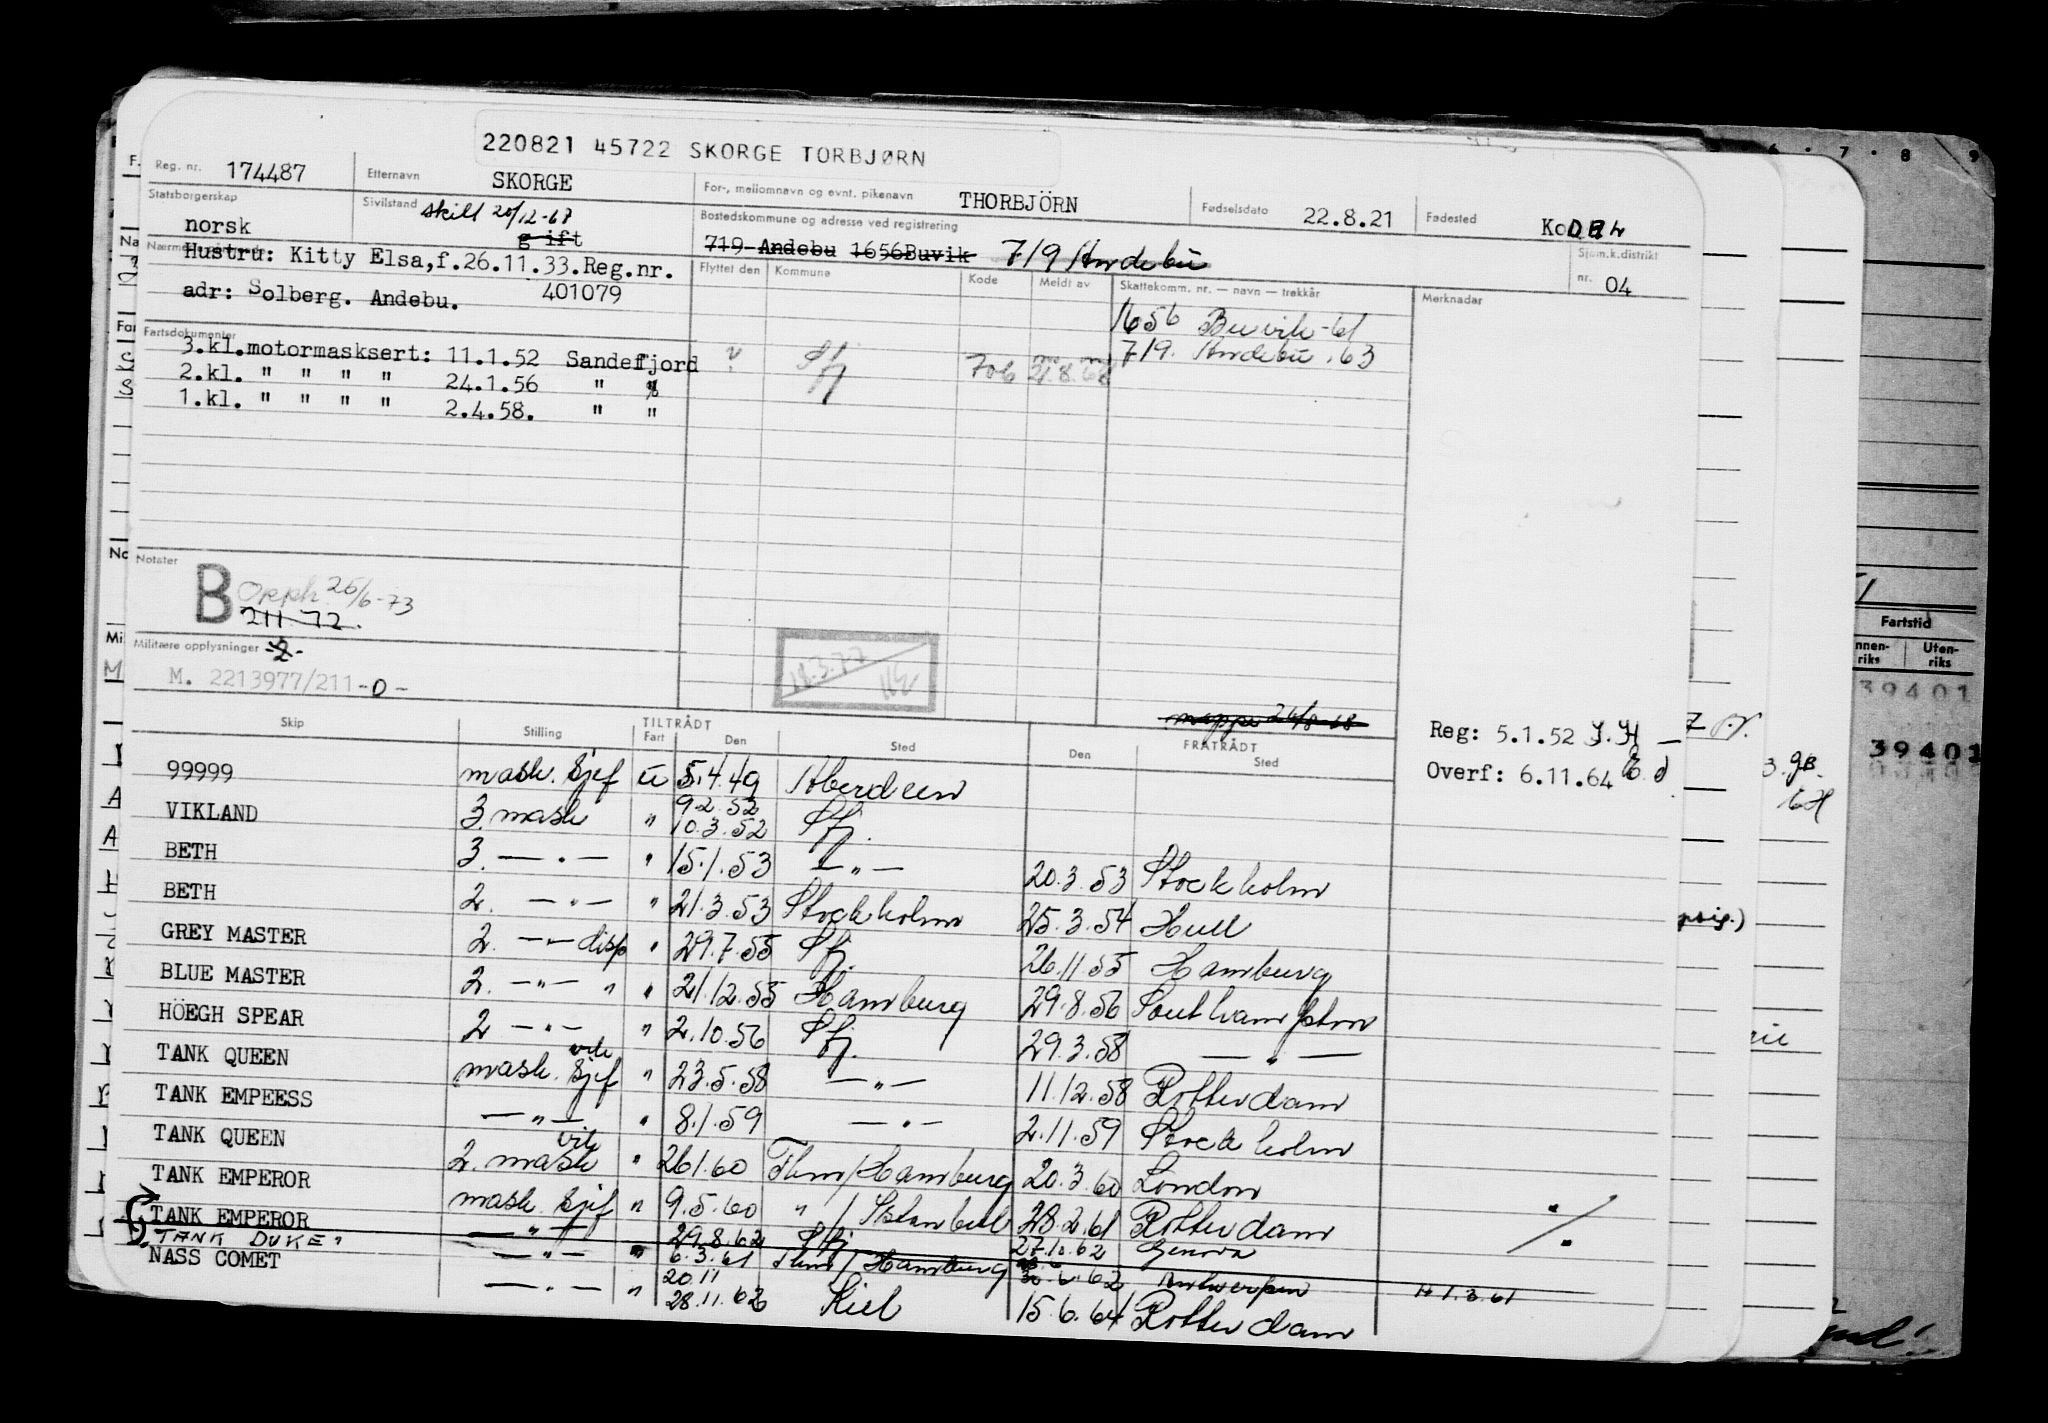 220821 45722 SKORGE TORBJØRN
Reg. nr. 174487 Etternavn SKORGE For-, mellomnavn og evnt. pikenavn THORBJÖRN Fødselsdato 22.8.21 Fødested KoDAL
Statsborgerskap norsk Sivilstand skilt 20/12-67 gift Bostedskommune og adresse ved registrering 719 Andebu 1656 Buvik 719 Andebu
Sjøm.k.distrikt nr. 04
Hustru: Kitty Elsa, f.26.11.33.Reg.nr.
adr: Solberg. Andebu. 401079
Flyttet den Kommune Kode Meldt av Skattekomm. nr. — navn — trekkår Merknader
1656 Buvik -61
719. Andebu .63
Sfj 706
Fartsdokumenter
3.kl.motormasksert: 11.1.52 Sandefjord
2.kl. " " " " 24.1.56 " "
1.kl. " " " " 2.4.58. " "
Notater
B Opph 25/6-73
211 72.
Militære opplysninger -2-
M. 2213977/211-0-
mappe 26/8-68
Reg: 5.1.52
Overf: 6.11.64
Skip Stilling TILTRÅDT Fart Den Sted FRATRÅDT Den Sted
99999 mask. sjef u 5.4.49 Aberdeen
VIKLAND 3. mask " 9.2.52 10.3.52 Sfj.
BETH 3. — " — " 15.1.53 — " — 20.3.53 Stockholm
BETH 2. — " — " 21.3.53 Stockholm 25.3.54 Hull
GREY MASTER 2. — " — disp " 29.7.55 Sfj. 26.11.55 Hamburg
BLUE MASTER 2. — " — " " 21.12.55 Hamburg 29.8.56 Southampton
HÖEGH SPEAR 2 — " — " 2.10.56 Sfj. 29.3.58 — " —
TANK QUEEN vik mask. sjef " 23.5.58 — " — 11.12.58 Rotterdam
TANK EMPEESS — " — " 8.1.59 — " — 2.11.59 Stockholm
TANK QUEEN vik 2. mask " 26.1.60 Thm/Hamburg 20.3.60 London
TANK EMPEROR mask. sjef " 9.5.60 " / Istanbul 28.2.61 Rotterdam
TANK EMPEROR — " — 29.8.62 Sfj 27.10.62 Genova
TANK DUKE — " — " 6.3.61 Thm/Hamburg 30.6.62 Antwerpen 1.3.61
NASS COMET — " — " 20.11 28.11.62 Kiel 15.6.64 Rotterdam
Fartstid
Uten-
riks
39401
39401